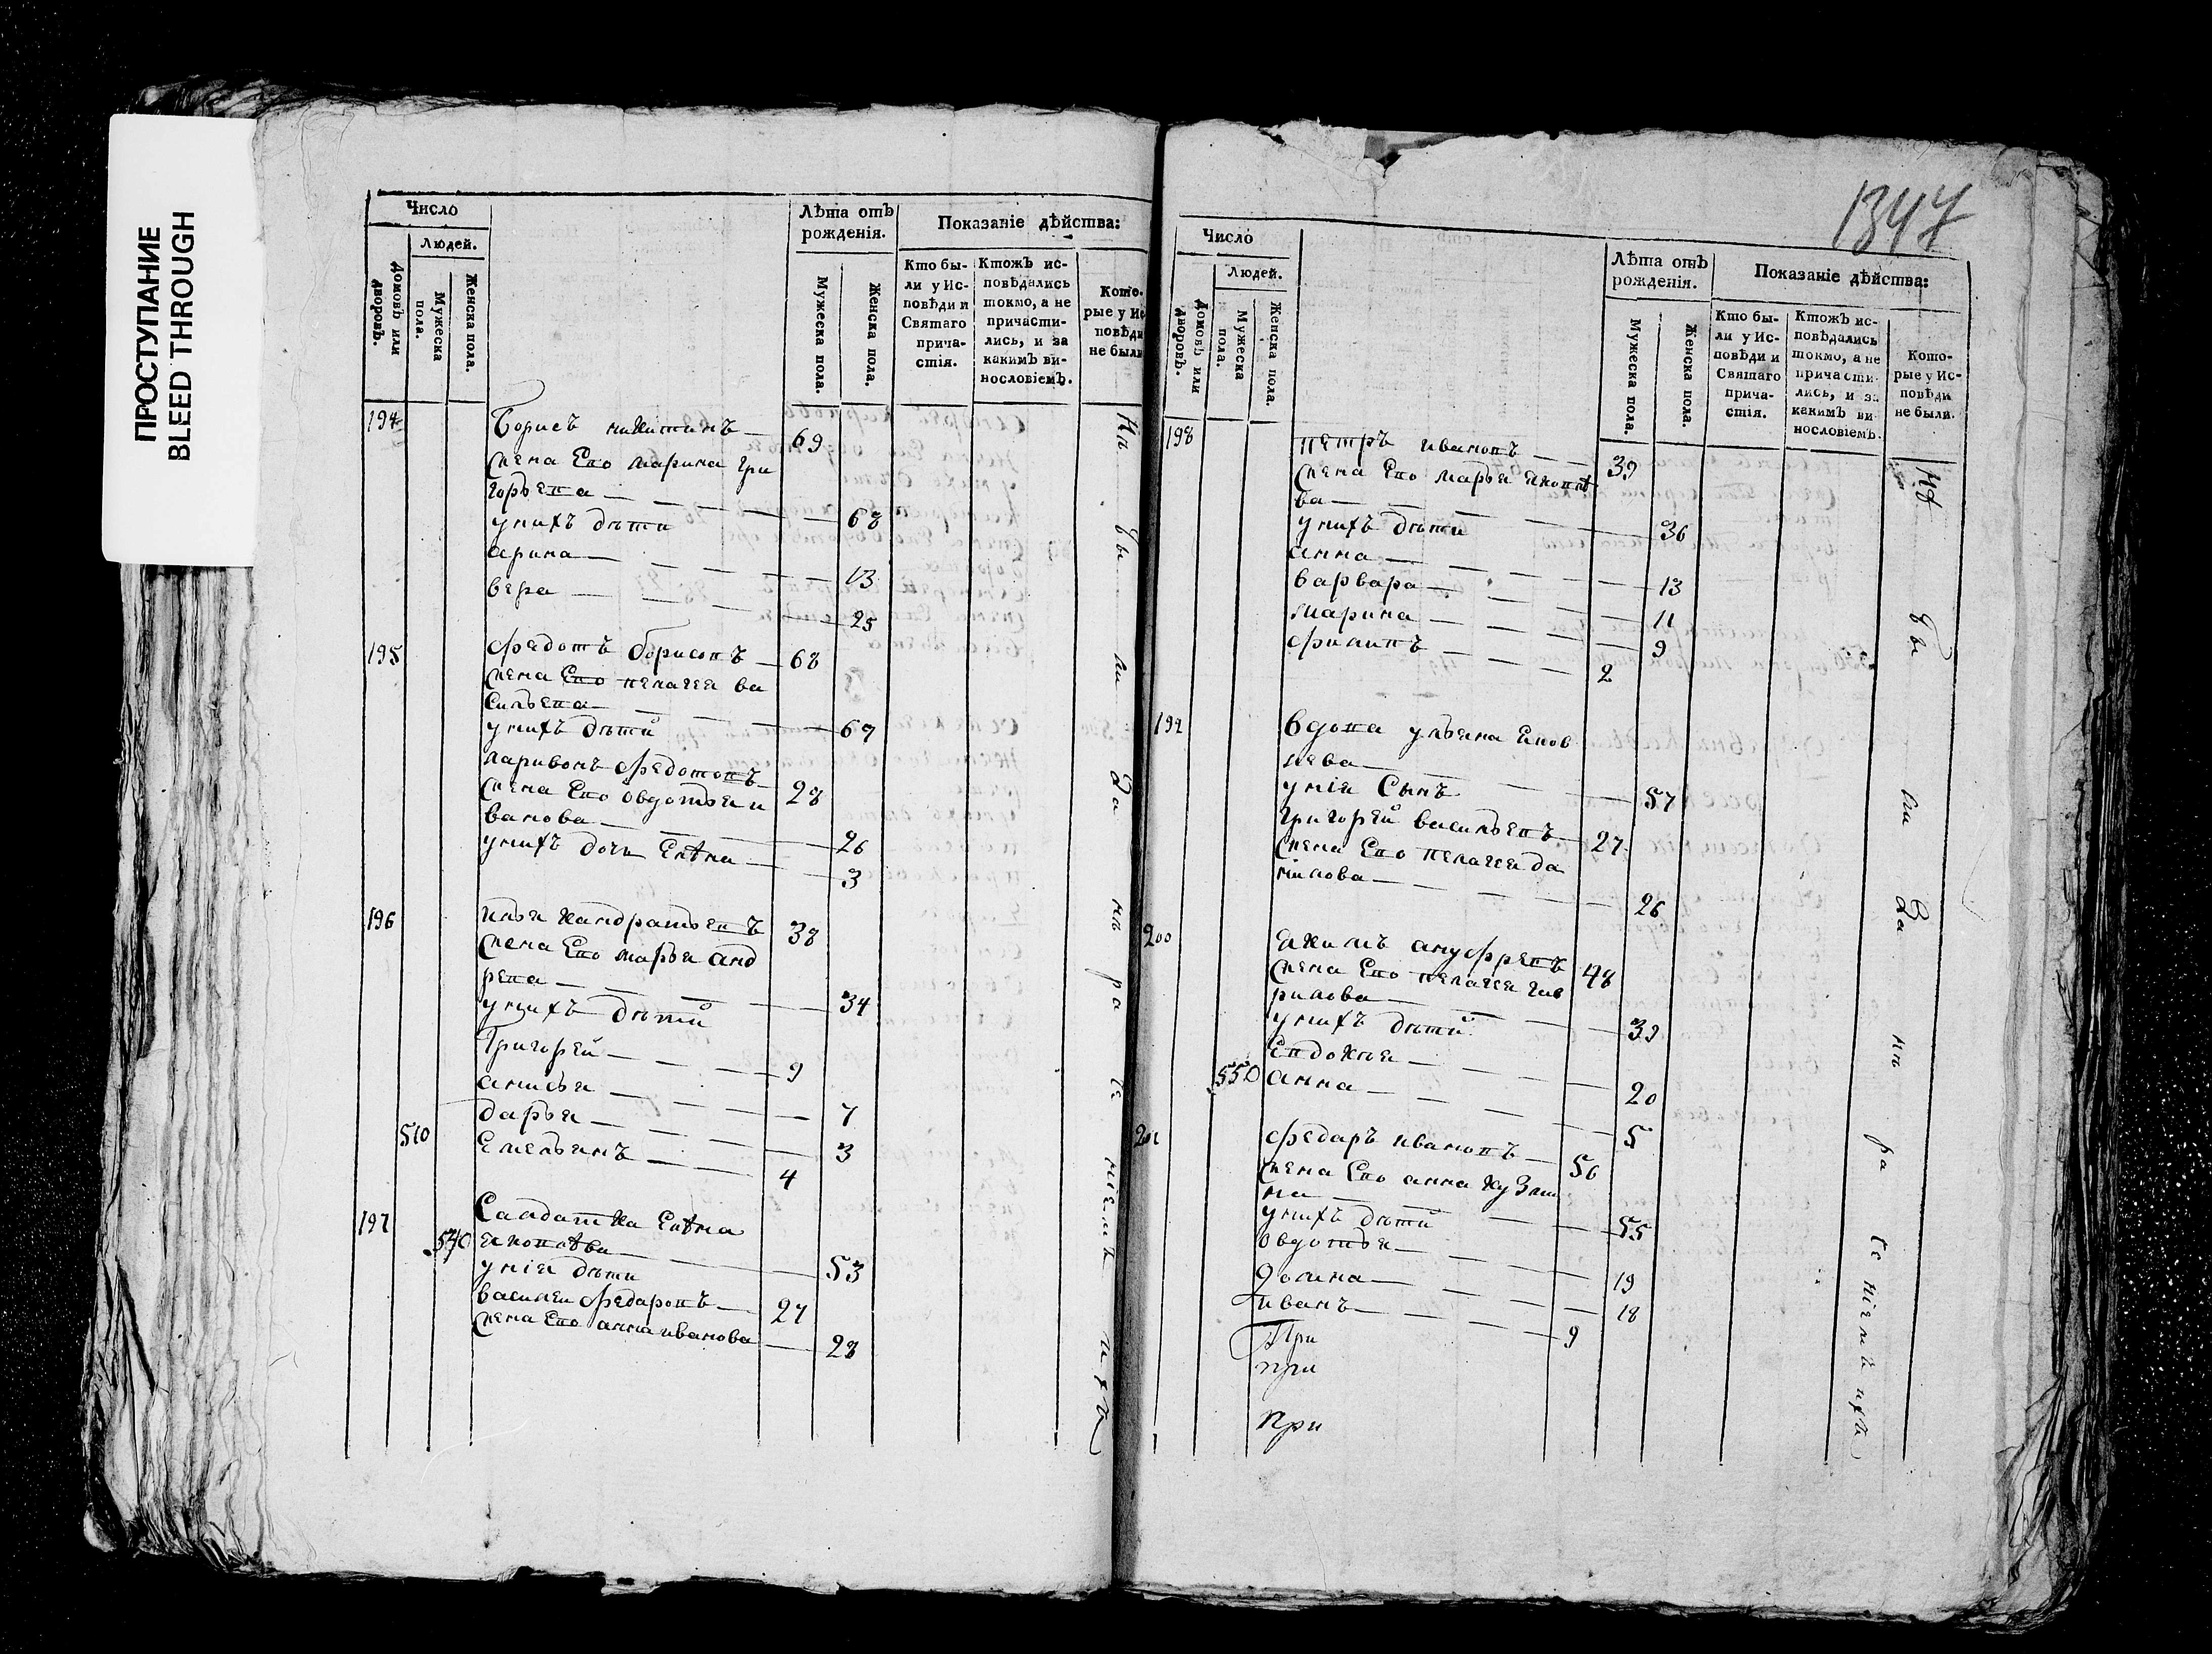 ПРОСТУПАНИЕ
BLEED THROUGH
Число
Людей.
Домовъ или дворовъ.
Мужеска пола.
Женска пола.
Лѣта отъ рожденія.
Мужеска пола.
Женска пола.
Показаніе дѣйства:
Кто бы-
ли у Ис-
повѣди и
Святаго
прича-
стія.
Ктожъ ис-
повѣдались
токмо, а не
причасти-
лись, и за
какимъ ви-
нословіемъ.
Кото-
рые у Ис
повѣди
не были
194 Борисъ никитинъ 69
жена Его марина гри
горьева 68
унихъ дѣти
арина 13
вера 25
195 Федотъ борисовъ 68
жена Его пелагея ва
сильева 67
унихъ дѣтй
ларивонъ Федотовъ 28
жена Его овдотья и
ванова 26
унихъ дочь Елѣна 3
196 илья кандратьевъ 38
жена Его марья анд
рева 34
унихъ дѣтй
Григорей 9
анисья 7
дарья 3
510 Емельянъ 4
197 Салдатка Елѣна
540 яковлѣва 53
унія дѣти
василеи Федаровъ 27
жена Его анна иванова 28
1347
Число
Людей.
Домовъ или дворовъ.
Мужеска пола.
Женска пола.
Лѣта отъ рожденія.
Мужеска пола.
Женска пола.
Показаніе дѣйства:
Кто бы-
ли у Ис-
повѣди и
Святаго
прича-
стія.
Ктожъ ис-
повѣдались
токмо, а не
причасти-
лись, и за
какимъ ви-
нословіемъ.
Кото-
рые у Ис-
повѣди
не были.
198 петръ ивановъ 39
жена Его марья яковлѣ
ва 36
унихъ дѣти
анна 13
варвара 11
марина 9
филипъ 2
199 вдова ульяна яков
лева 57
унія Сынъ
григорей васильевъ 27
жена Его пелагея да
нилова 26
200 якимъ ануфревъ 48
жена Его пелагея гав
рилова 39
унихъ дѣтй
Евдокия 20
550 анна 5
201 федаръ ивановъ 56
жена Его анна кузми
на 55
унихъ дѣтй
овдотья 19
домна 18
иванъ 9
При
при
при